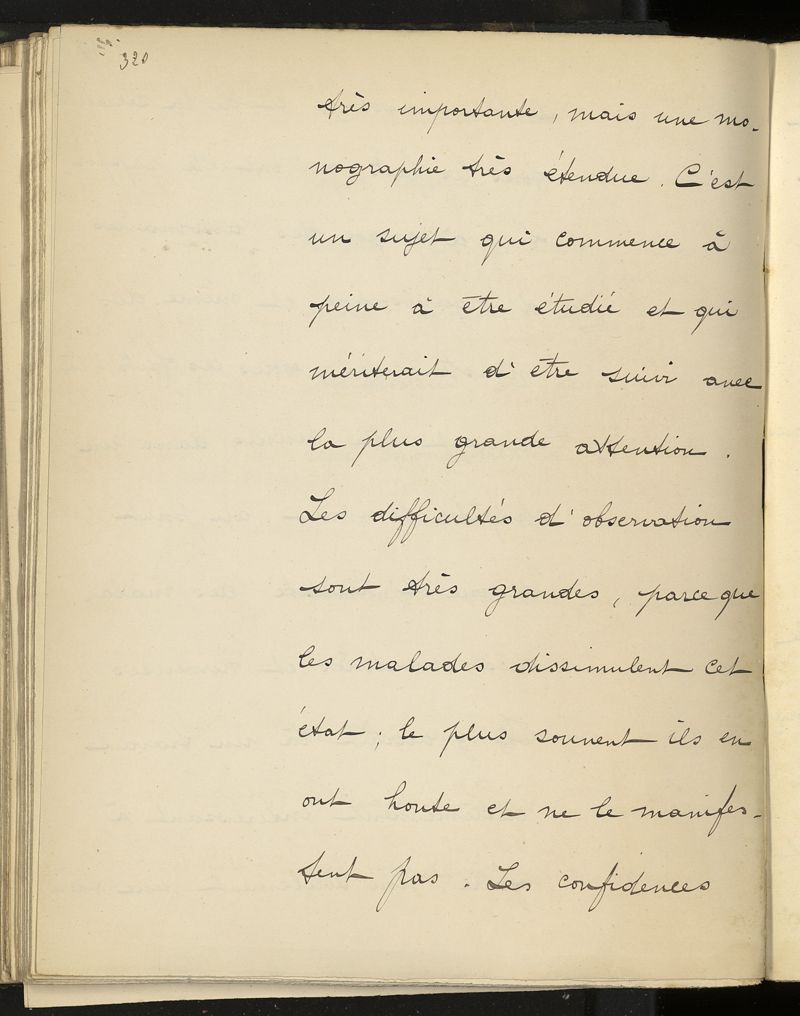 320
très importante, mais une mo-
nographie très étendue. C'est
un sujet qui commence à
peine à être étudié et qui
mériterait d'être suivi avec
la plus grande attention.
Les difficultés d'observation
sont très grandes, parce que
les malades dissimulent cet
état; le plus souvent ils en
ont honte et ne le manifes-
tent pas. Les confidences